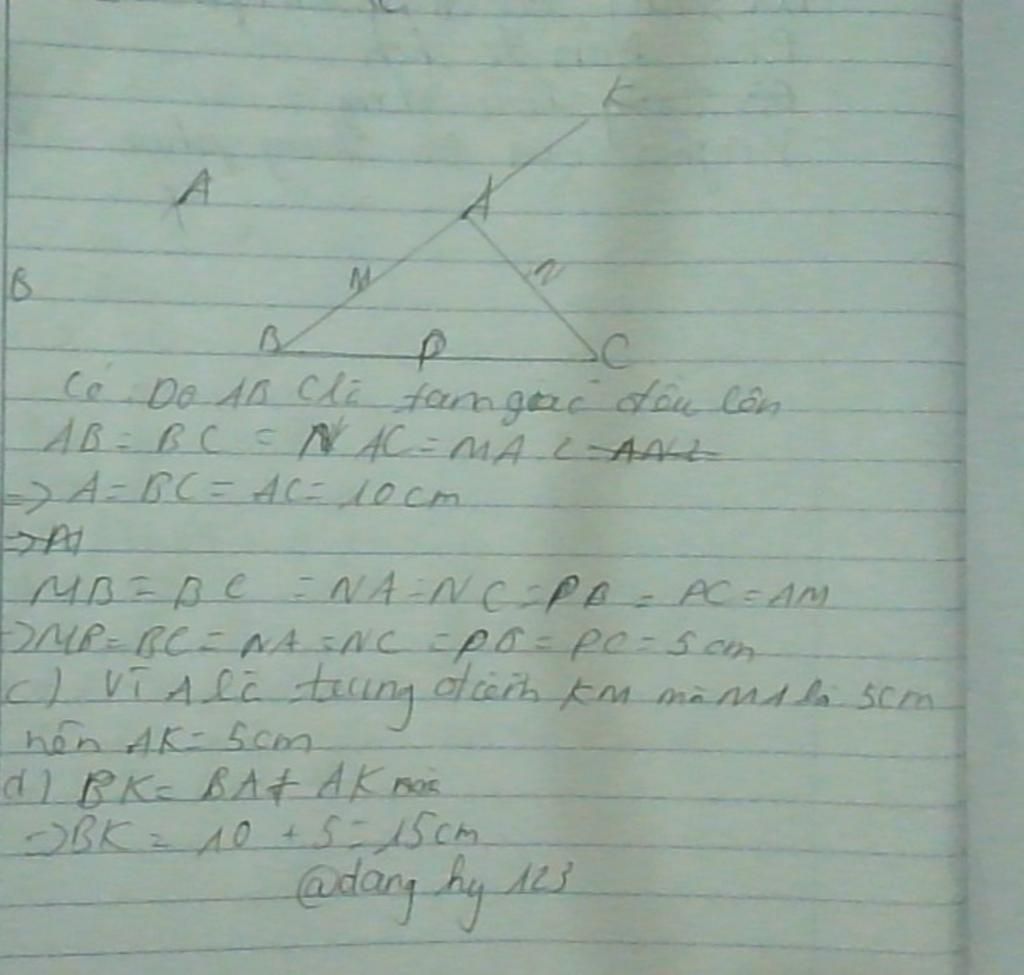 K
A
A
M
N
B
B
P
C
Có Do AB C là tam giác đều lên
AB = BC = N AC = MA 2 = AN 2
=> A = BC = AC = 10 cm
=> M
MB = BC = NA = NC = PB = PC = AM
=> MB = BC = NA = NC = PB = PC = 5 cm
c) Vì A là trung điểm KM mà MA là 5cm
nên AK = 5cm
d) BK = BA + AK
=> BK = 10 + 5 = 15cm
@dang hy 123